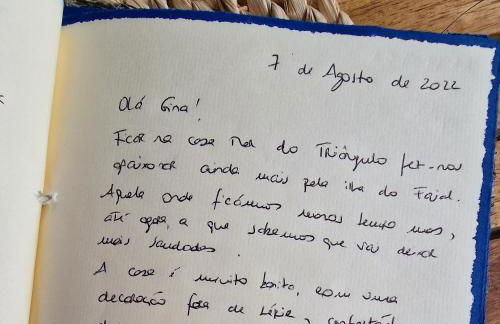 7 de Agosto de 2022
Olá Gina!
Ficar na casa Mar do Triângulo fez-nos
apaixonar ainda mais pela ilha do Faial.
Aquela onde ficámos menos tempo mas,
até agora, a que sabemos que vai deixar
mais saudades.
A casa é muito bonita, com uma
decoração fora de série, confortável